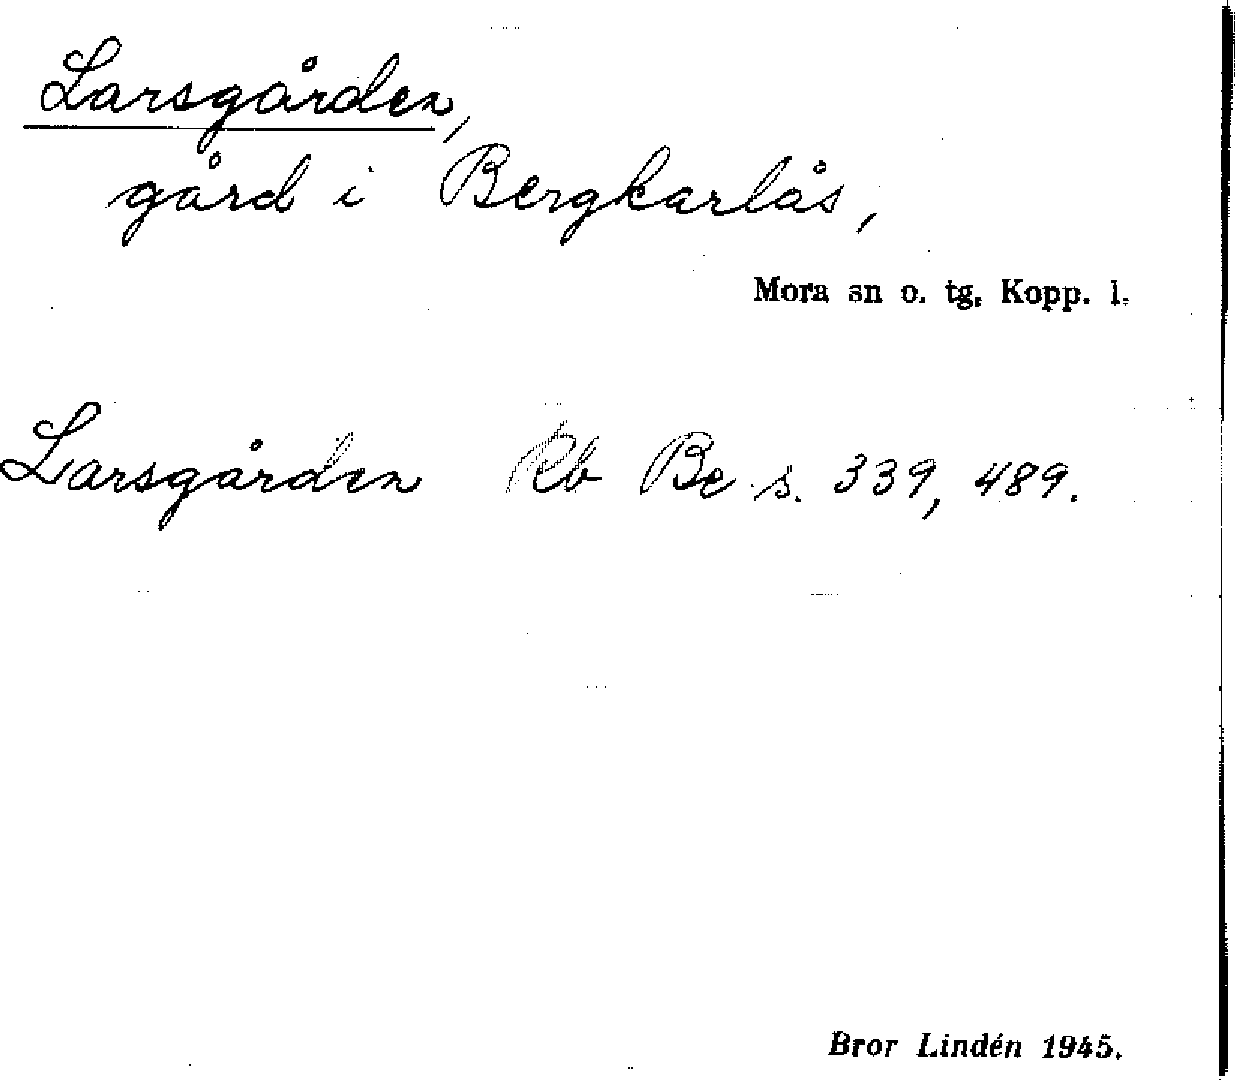 Larsgården,
gård i Bergkarlås,
Mora sn o. tg, Kopp. l.
Larsgården Rb Be s. 339, 489.
Bror Lindén 1945.